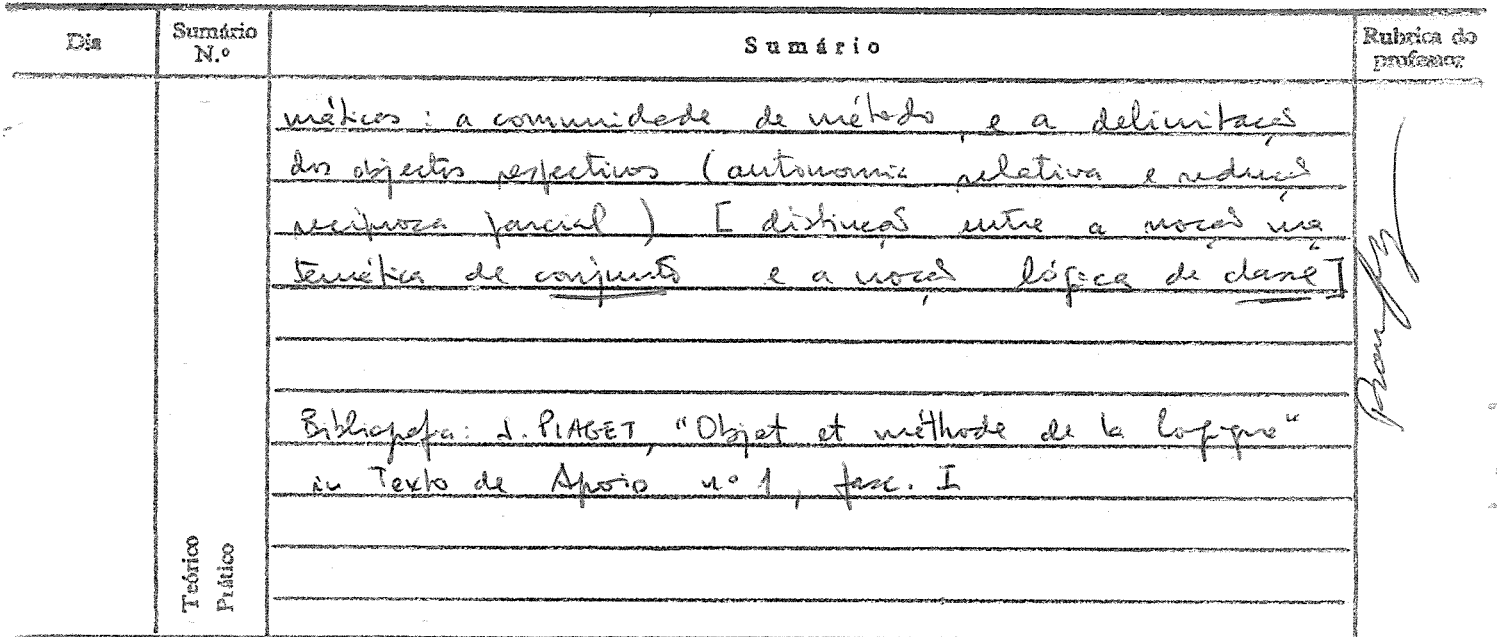 Dia
Sumário
N.º
Sumário
Rubrica do
professor
máticas : a comunidade de método, e a delimitação
dos objectos respectivos (autonomia relativa e redução
recíproca parcial) [distinção entre a noção ma
temática de conjunto e a noção lógica de classe]
Bibliografia: J. PIAGET, "Objet et méthode de la logique"
in Texto de Apoio nº 1, fasc. I
Teórico
Prático